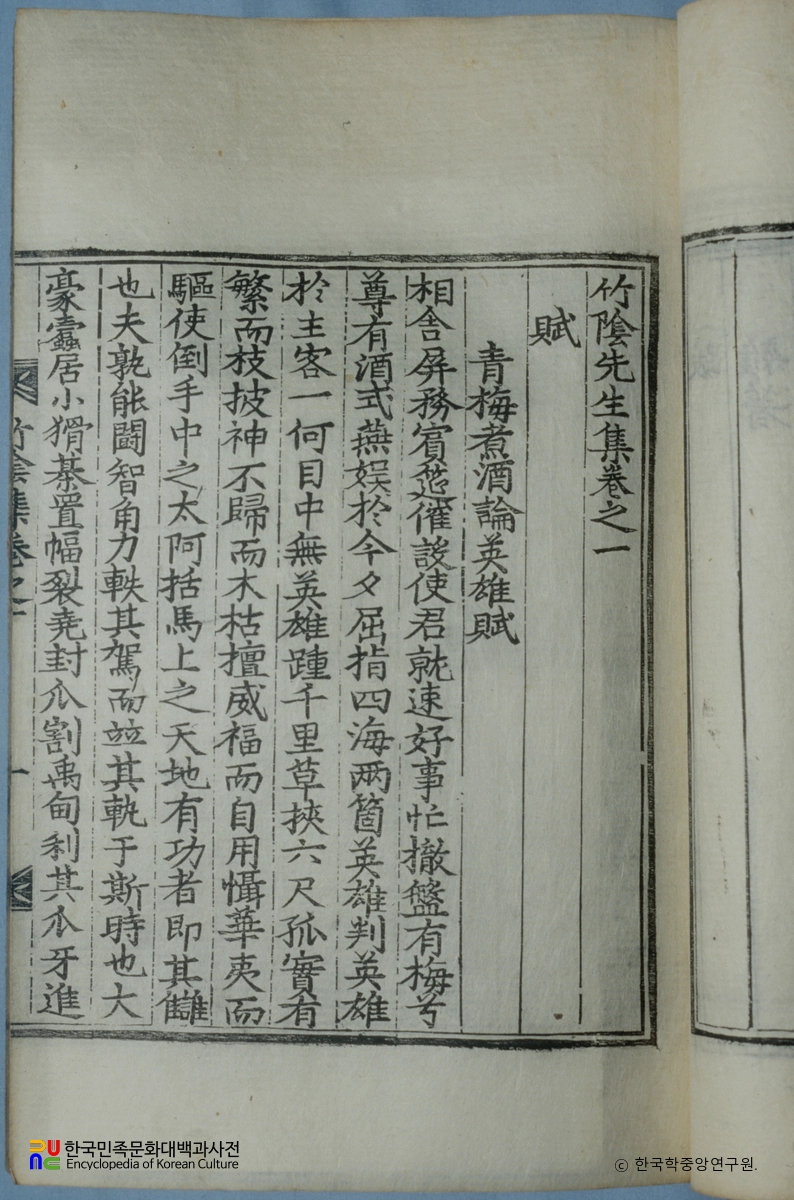 竹陰先生集卷之一
賦
青梅煮酒論英雄賦
相舍屛務賓筵催設使君就速好事忙撤盤有梅兮
尊有酒式燕娱於今夕屈指四海兩箇英雄判英雄
於主客一何目中無英雄踵千里草挾六尺孤實有
繁而枝披神不歸而木枯擅威福而自用懾華夷而
驅使倒手中之太阿括馬上之天地有功者即其讎
也夫孰能鬪智角力軼其駕而竝其軌于斯時也大
豪蠧居小猾棊置幅裂堯封瓜割禹甸利其瓜牙進
竹陰集卷之一
一
한국민족문화대백과사전
Encyclopedia of Korean Culture
ⓒ 한국학중앙연구원.